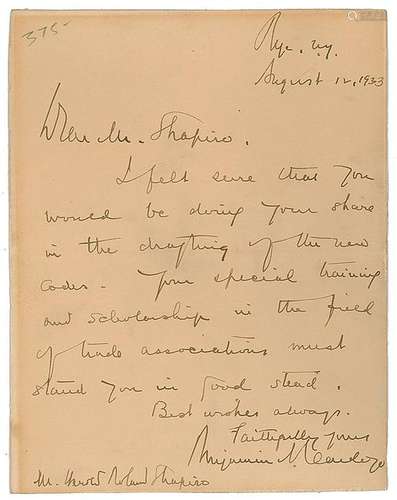 375-
Rye, N.Y.
August 12, 1933
Dear Mr. Shapiro,
I felt sure that you
would be doing your share
in the drafting of the new
codes. Your special training
and scholarship in the field
of trade associations must
stand you in good stead.
Best wishes always.
Faithfully yours
Benjamin N. Cardozo
Mr. Harold Roland Shapiro